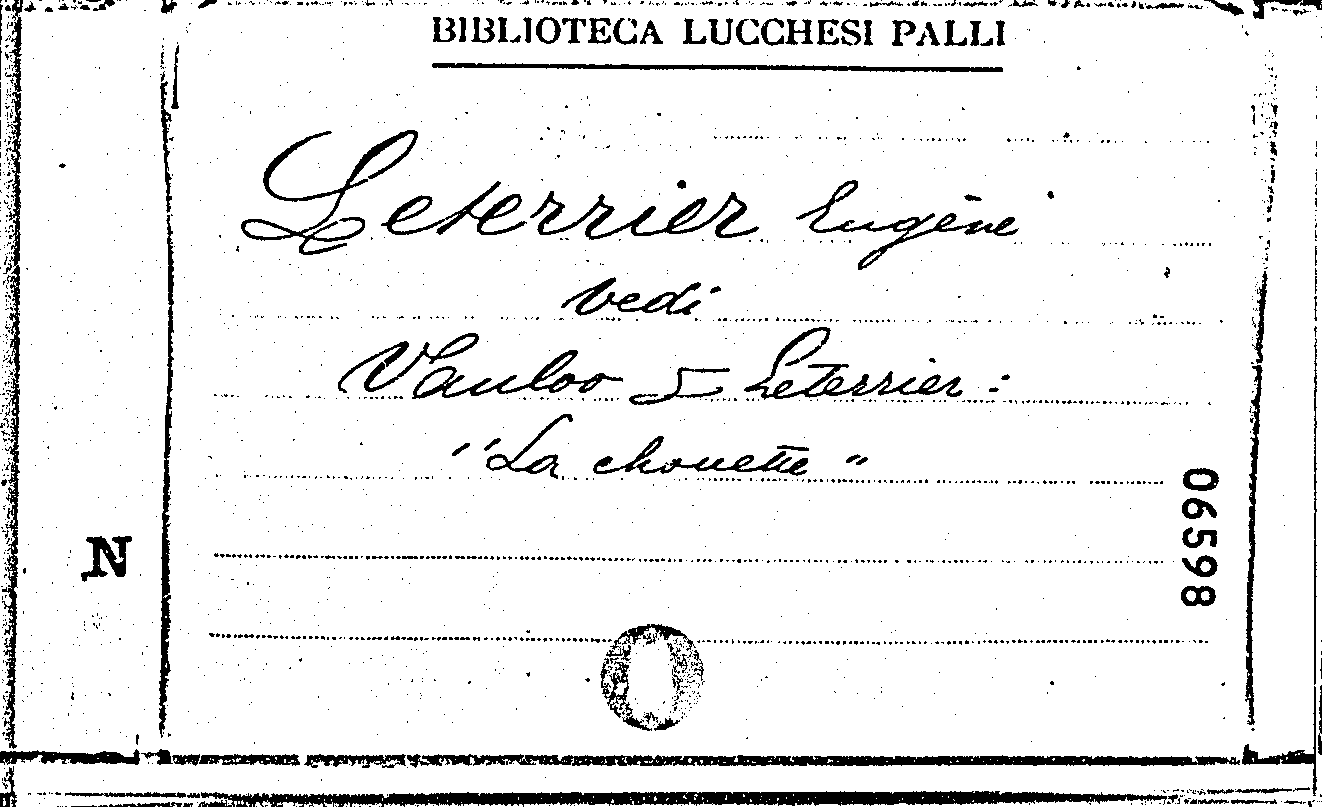 BIBLIOTECA LUCCHESI PALLI
Leterrier Eugène
vedi
Vanloo & Leterrier:
"La chouette"
06598
N